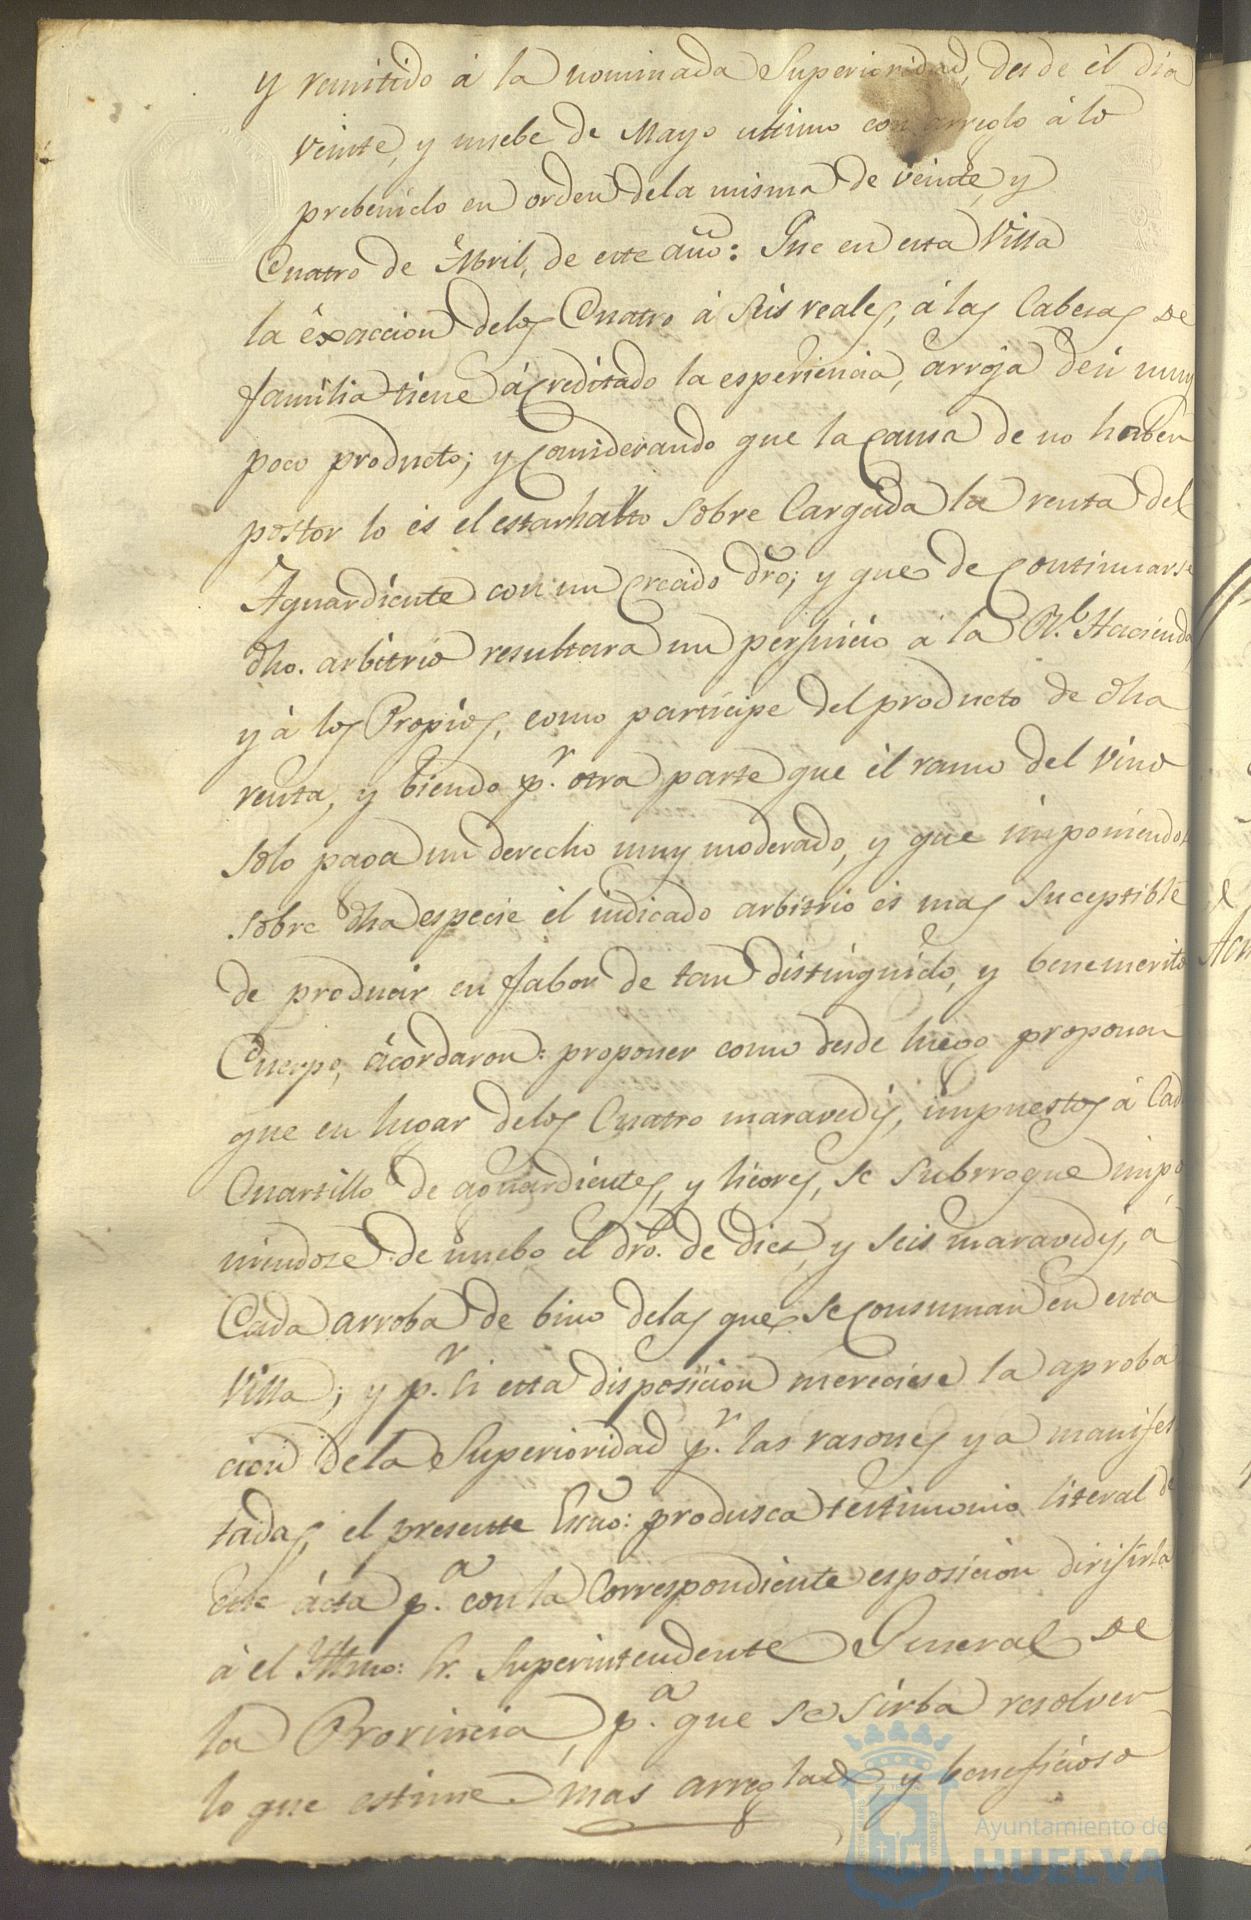 y remitido á la nominada Superioridad, desde él dia
veinte, y nuebe de Mayo ultimo con arreglo á lo
prebenido en orden dela misma de veinte, y
Cuatro de Abril, de este año: Que en esta Villa
la éxaccion delos Cuatro á Seis reales, á las Cabesas de
familia tiene ácreditado la esperiencia, arroja deú muy
poco producto; y Considerando que la Causa de no haber
postor lo és el estar hatto Sobre Cargada la renta del
Aguardiente con un Crecido dro; y que de Continuarse
dho. arbitrio resultara un perjuicio á la Rl. Hacienda
y á los Propios, como participe del producto de dha
renta, y biendo pr. otra parte que él ramo del Vino
Solo paga un derecho muy moderado, y que imponiendo
Sobre dha especie él indicado arbitrio és mas Suceptible
de producir en fabor de tan distinguido, y benemerito
Cuerpo, ácordaron: proponer como desde luego proponen
que en lugar delos Cuatro maravedis, impuestos á Cad
Cuartillo de aguardientes, y licores, se Subrrogue impo
niendose de nuebo el dro. de dies, y Seis maravedis, á
Cada arroba de bino delas que se Consuman en esta
Villa; y pr. si esta disposicion mereciese la aproba
cion dela Superioridad pr. las rasones ya manifes
tadas, el presente Essno: produsca testimonio literal de
este ácta pa. con la Correspondiente esposicion dirijirla
á el Yltmo: Sr. Superintendente General de
la Provincia, pa. que se Sirba resolver
lo que estime mas arreglado, y beneficioso
Ayuntamiento de
HUELVA